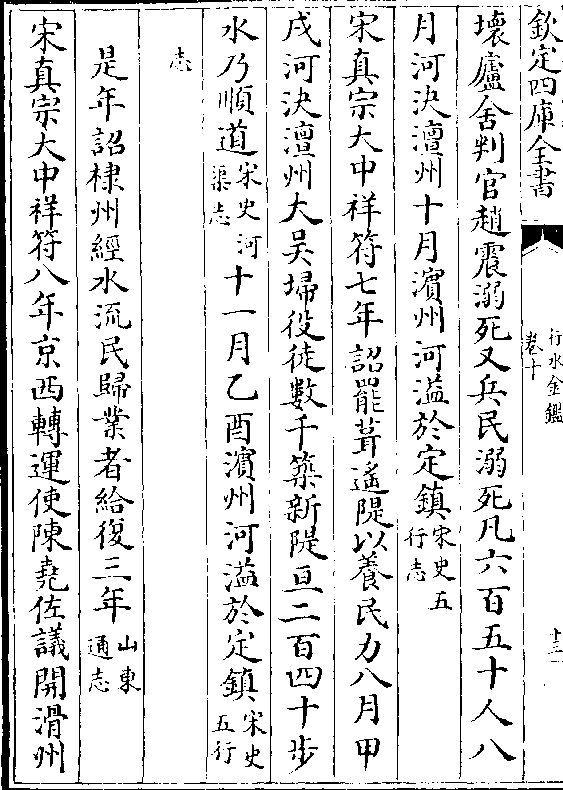 欽定四庫全書
行水金鑑
卷十
壞廬舍判官趙震溺死又兵民溺死凡六百五十人八
月河決澶州十月濱州河溢於定鎮宋史五行志
宋真宗大中祥符七年詔罷葺遙隄以養民力八月甲
戌河決澶州大吳埽役徒數千築新隄亘二百四十步
水乃順道宋史河渠志十一月乙酉濱州河溢於定鎮宋史五行
志
是年詔棣州經水流民歸業者給復三年山東通志
宋真宗大中祥符八年京西轉運使陳堯佐議開滑州